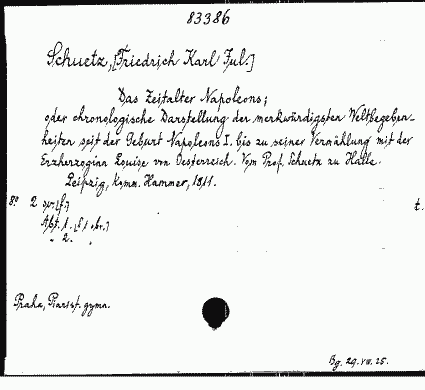 83386
Schuetz, [Friedrich Karl Jul.]
Das Zeitalter Napoleons;
oder chronologische Darstellung der merkwürdigsten Weltbegeben-
heiten seit der Geburt Napoleons I. bis zu seiner Vermählung mit der
Erzherzogina Louise von Oesterreich. Vom Prof. Schuetz zu Halle.
Leipzig, Hammer, 1811.
8° 2 t.
Abt. 1.
" 2. "
Praha, Piarist. gymn.
Bg. 29. VIII. 25.